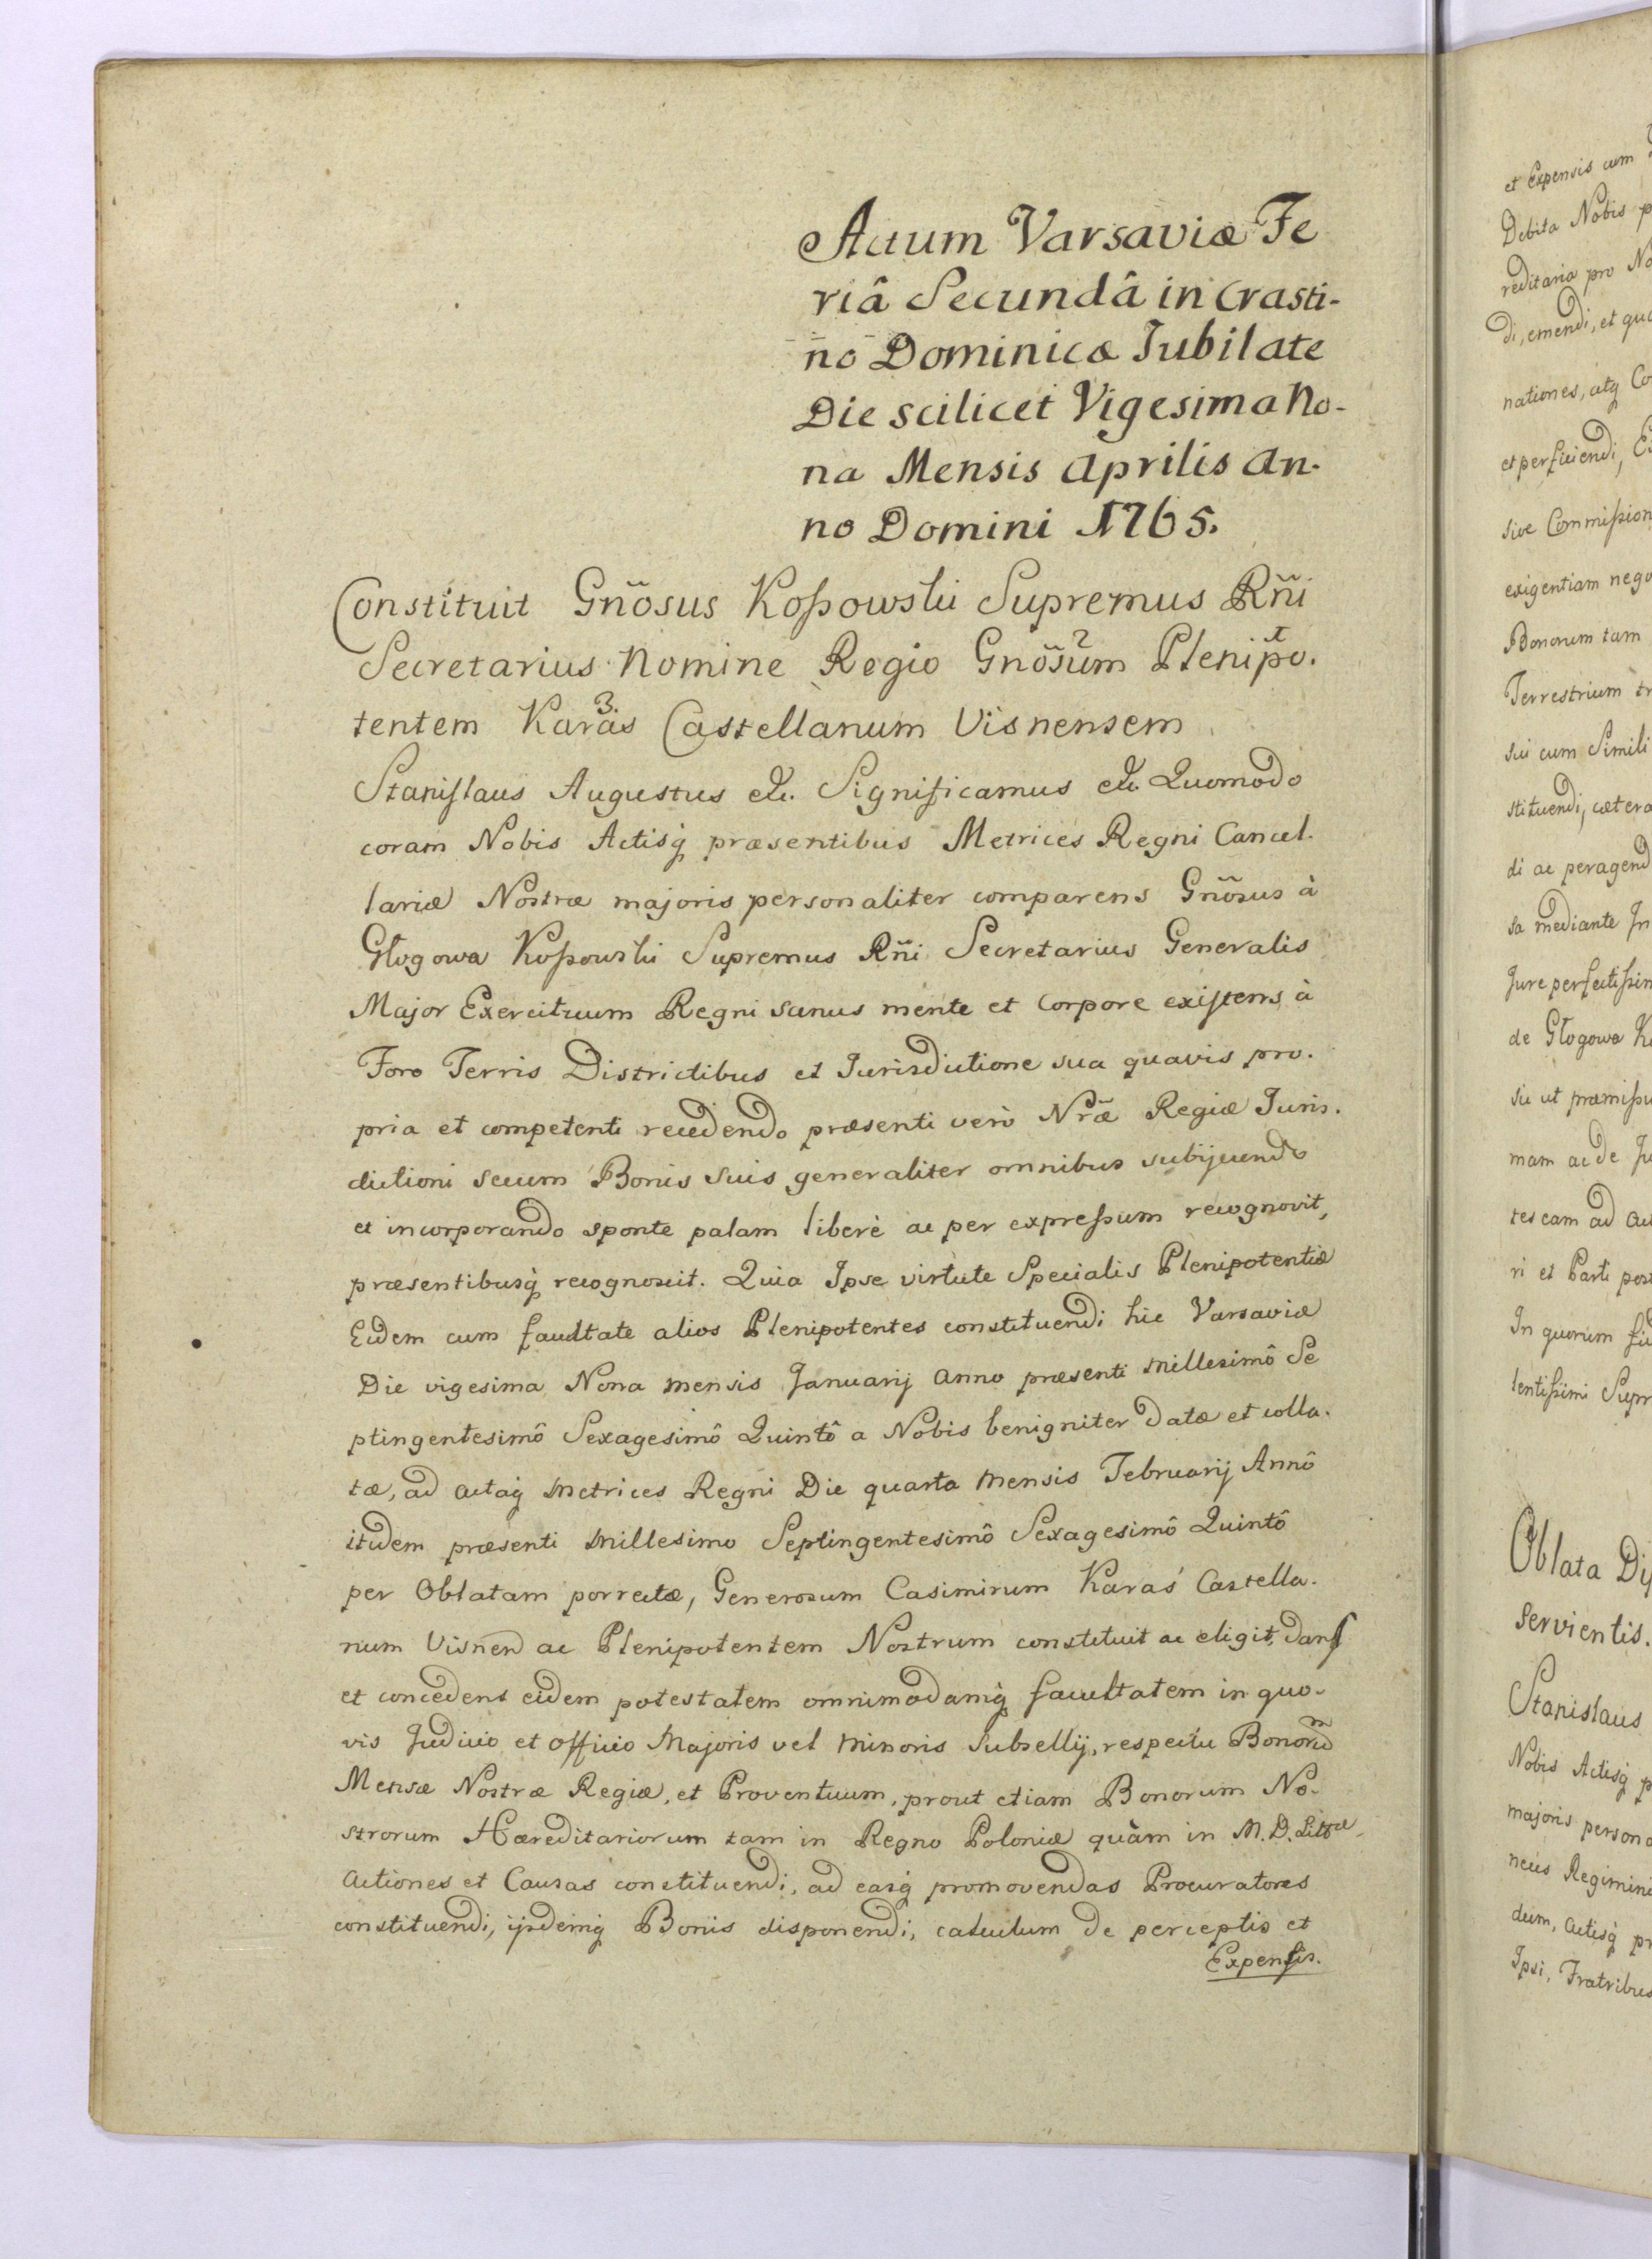 Actum Varsaviæ Fe
riâ Secundâ in Crasti-
no Dominicæ Jubilate
Die scilicet Vigesima No-
na Mensis Aprilis An-
no Domini 1765.
Constituit Gñosus Koßowski Supremus Rñi
Secretarius Nomine Regio Gnõsum 2 Plenipo. 1
tentem Karas 3. Castellanum Visnensem
Stanislaus Augustus etc. Significamus etc. Quomodo
coram Nobis Actisq præsentibus Metrices Regni Cancel.
lariæ Nostræ majoris personaliter comparens Gñosus à
Głogowa Koßowski Supremus Rñi Secretarius Generalis
Major Exercituum Regni sanus mente et Corpore existens à
Foro Terris Districtibus et Jurisdictione sua quavis pro.
pria et competenti recedendo præsenti verò Nræ̃ Regiæ Juris.
dictioni secum Bonis suis generaliter omnibus subijciendo
et incorporando sponte palam liberè ac per expreßum recognovit,
præsentibusq recognoscit. Quia Ipse virtute Specialis Plenipotentiæ
Eidem cum facultate alios Plenipotentes constituendi hic Varsaviæ
Die vigesima Nona mensis Januarij anno præsenti millesimô Se
ptingentesimô Sexagesimô Quintô a Nobis benigniter datæ et colla.
tæ, ad actaq Metrices Regni Die quarta mensis Februarij Annô
itidem præsenti millesimo Septingentesimô Sexagesimô Quintô
per Oblatam porrectæ, Generosum Casimirum Karaś Castella.
num Visnen ac Plenipotentem Nostrum constituit ac eligit, dans
et concedens eidem potestatem omnimodamq facultatem in quo-
vis Judicio et officio Majoris vel minoris Subsellij, respectu Bonorum
Mensæ Nostræ Regiæ, et Proventuum, prout etiam Bonorum No-
strorum Hæreditariorum tam in Regno Poloniæ quàm in M. D. Littæ
actiones et Causas constituendi, ad easq promovendas Procuratores
constituendi, ijsdemq Bonis disponendi, calculum de perceptis et
Expensis.
et Expensis cum
Debita Nobis p
reditaria pro No
di, emendi, et quo
nationes, atq Co
et perficiendi, Ei
sive Commißion
exigentiam nego
Bonorum tam
Terrestrium tr
sui cum Simili
stituendi, cætera
di ac peragend
sa mediante In
Jure perfectißim
de Głogowa K
su ut præmißu
mam ac de Ju
tes eam ad ac
ri et Parti pos
In quorum fid
lentißimi Supr
Oblata Di
Servientis.
Stanislaus
Nobis Actisq p
majoris persona
neus Regimini
dum, actisq pr
Ipsi, Fratribus